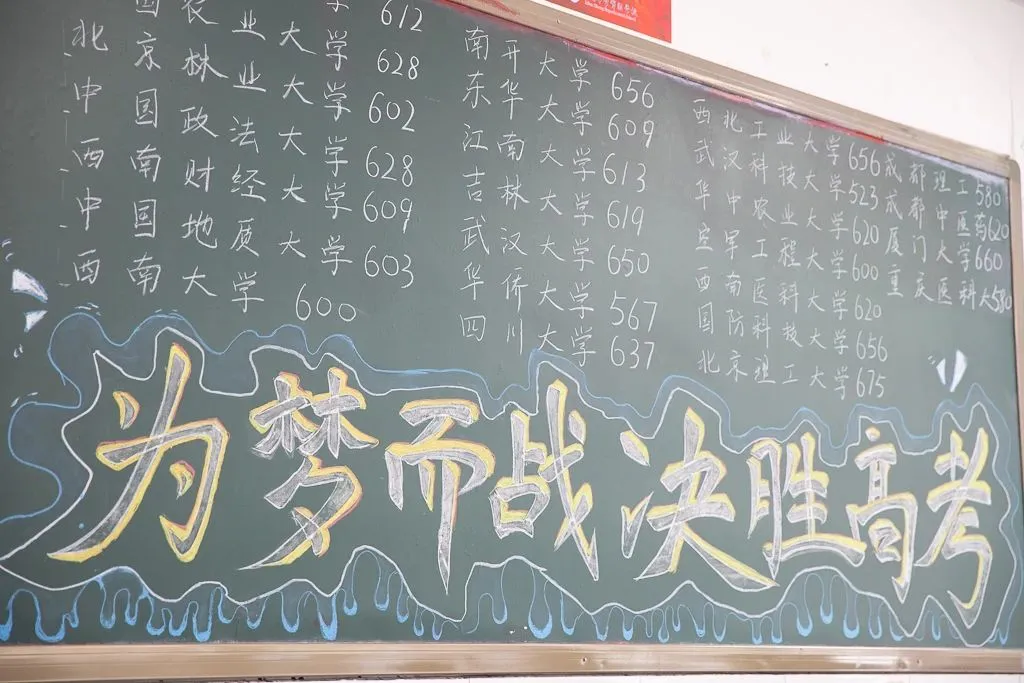 学 612
国农业大学 628
北京林业大学 602
中国政法大学 628
西南财经大学 609
中国地质大学 603
西南大学 600
南开大学 656
东华大学 609
江南大学 613
吉林大学 619
武汉大学 650
华侨大学 567
四川大学 637
西北工业大学 656
武汉科技大学 523
华中农业大学 620
空军工程大学 600
西南医科大学 620
国防科技大学 656
北京理工大学 675
成都理工 580
成都中医药 620
厦门大学 660
重庆医科大 580
为梦而战决胜高考